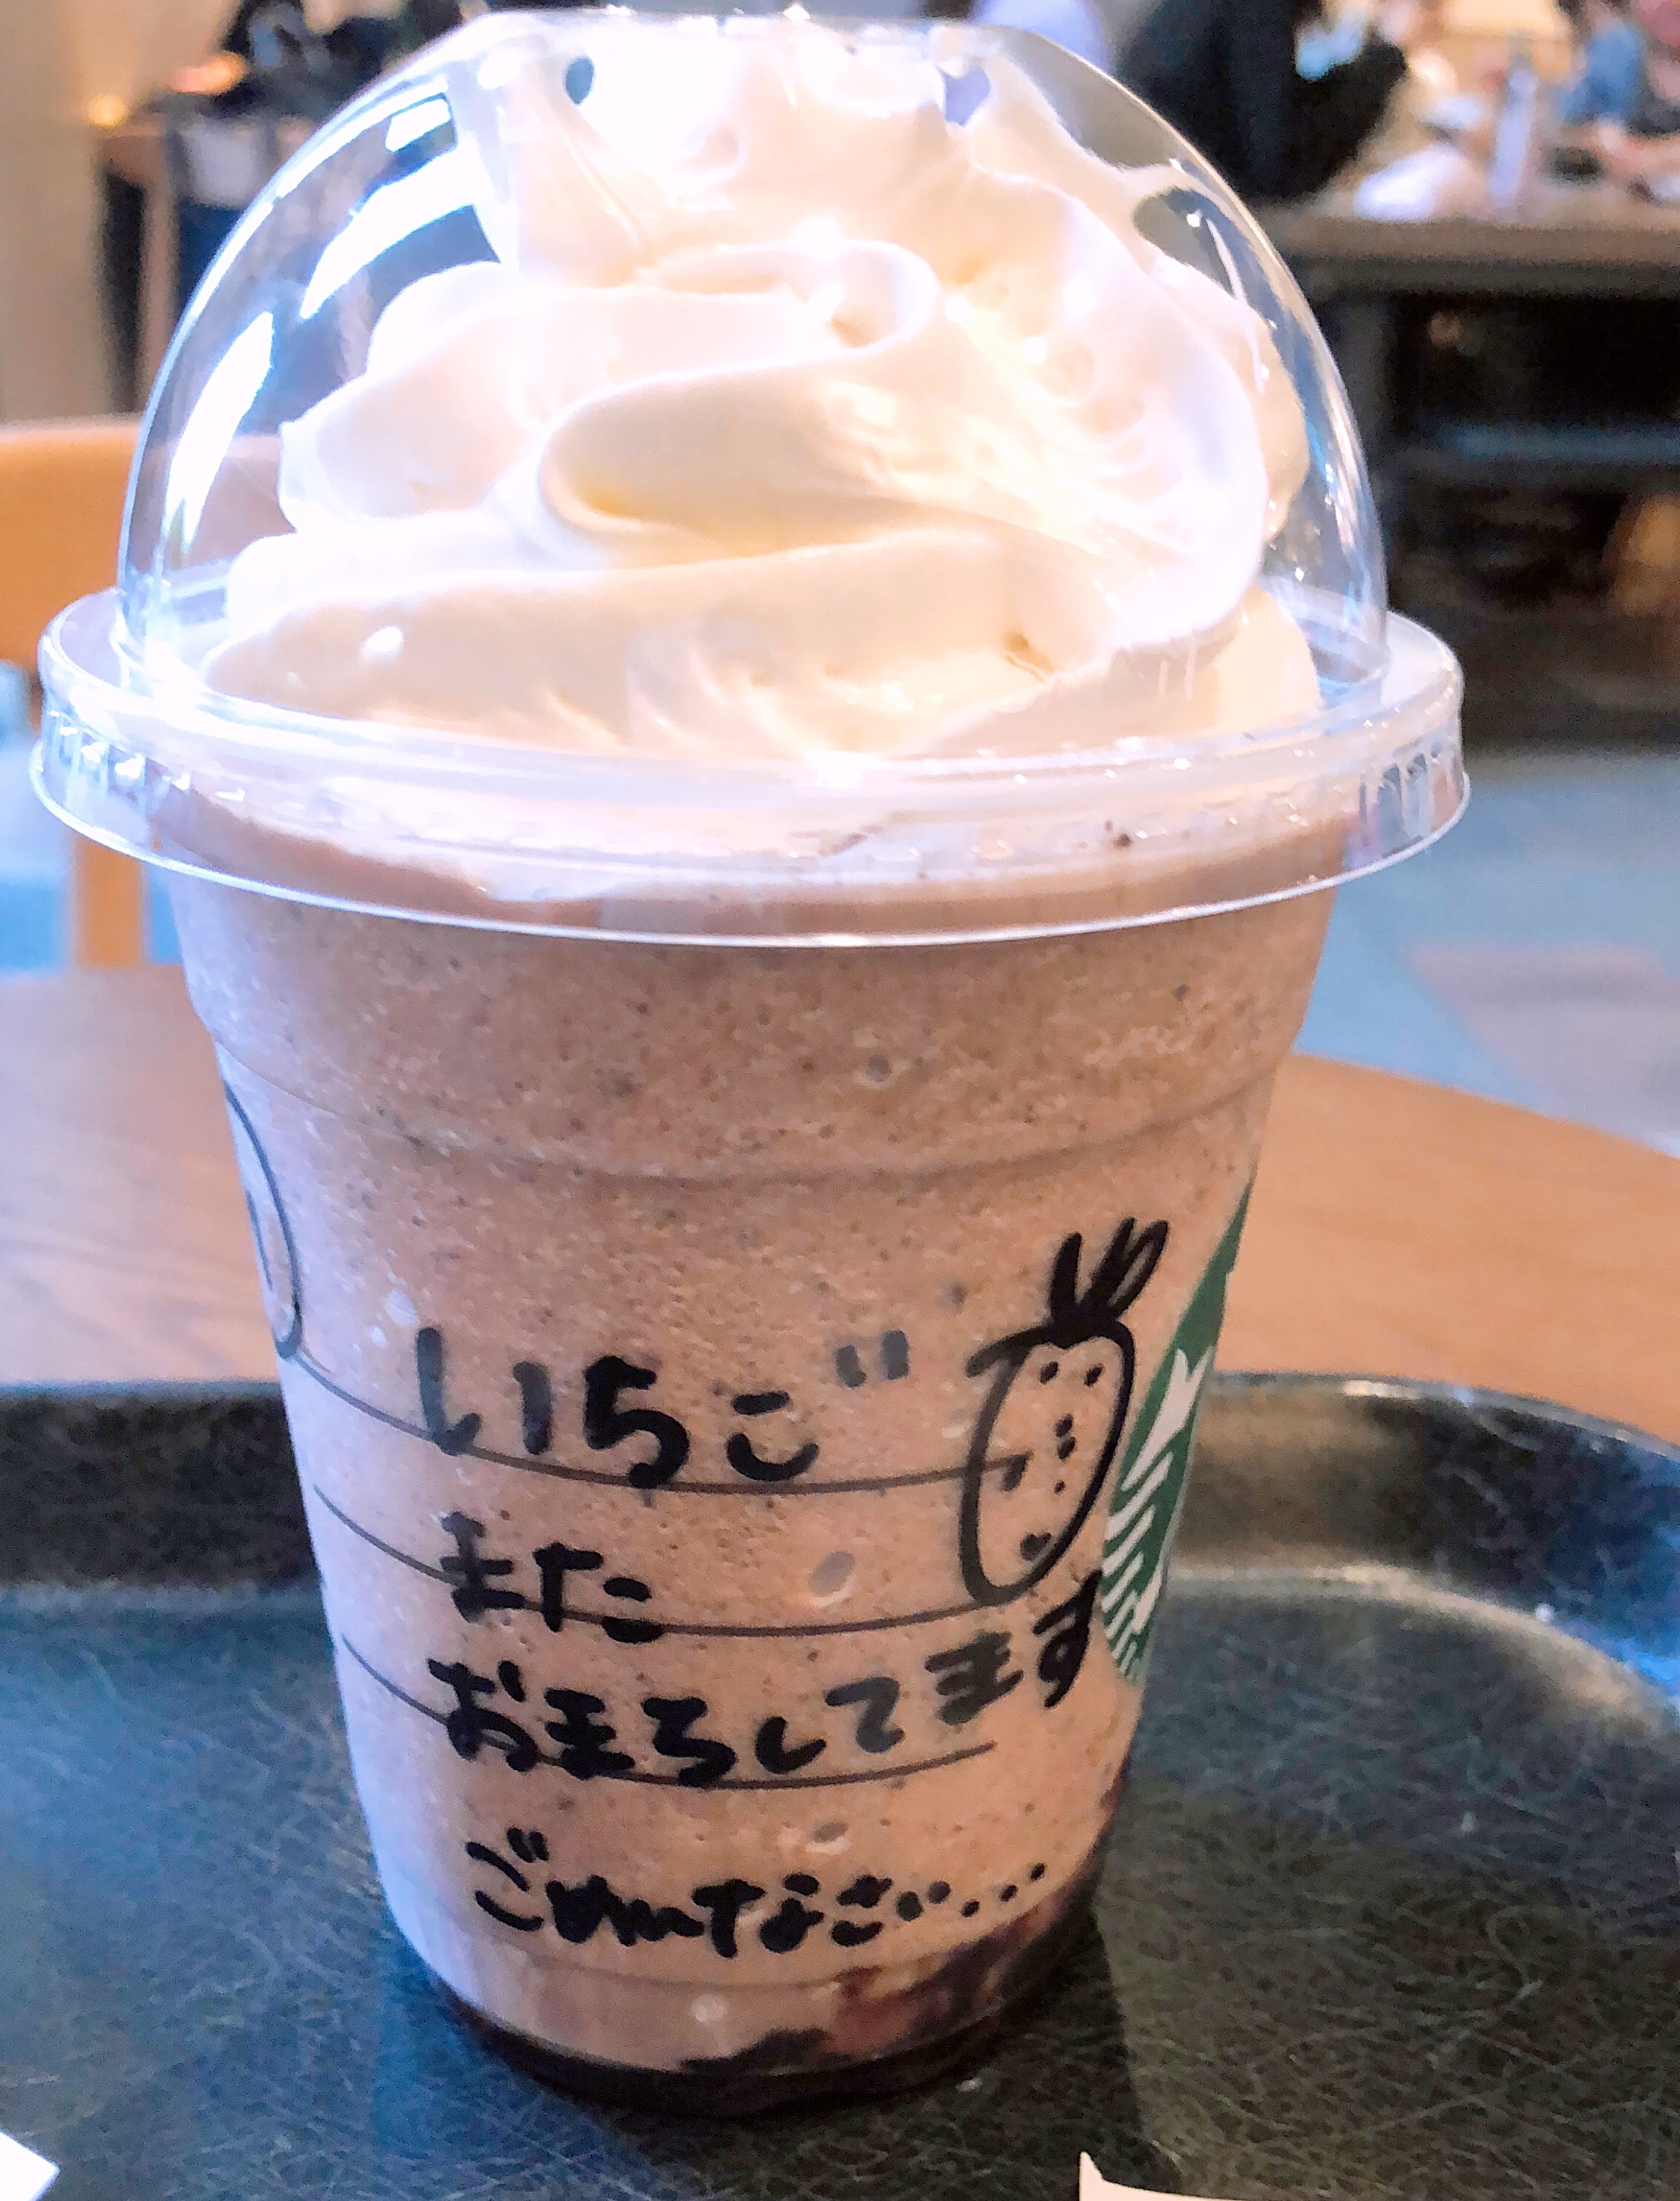 いちご
また
おまちしてます
ごめんなさい...